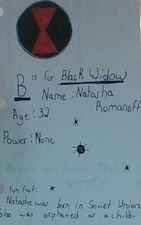 B is for Black Widow
Name: Natasha
Romanoff
Age: 32
Power: None
fun fact:
Natasha was born in Soviet Union.
She was orphaned as a child.